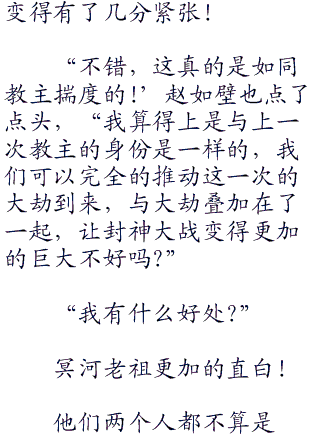 变得有了几分紧张！
“不错，这真的是如同
教主揣度的！’赵如壁也点了
点头，“我算得上是与上一
次教主的身份是一样的，我
们可以完全的推动这一次的
大劫到来，与大劫叠加在了
一起，让封神大战变得更加
的巨大不好吗？”
“我有什么好处？”
冥河老祖更加的直白！
他们两个人都不算是